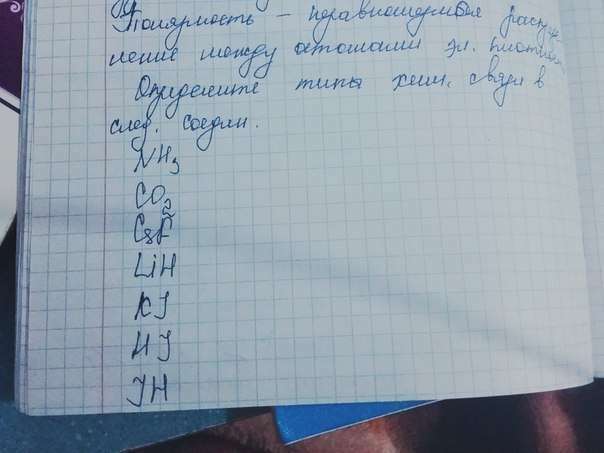 Полярность – неравномерная распреде
ление между атомами эл. плотности
Определите типы хим. связи в
след. соедин.
NH3
CO2
CsF
LiH
KJ
HJ
JH